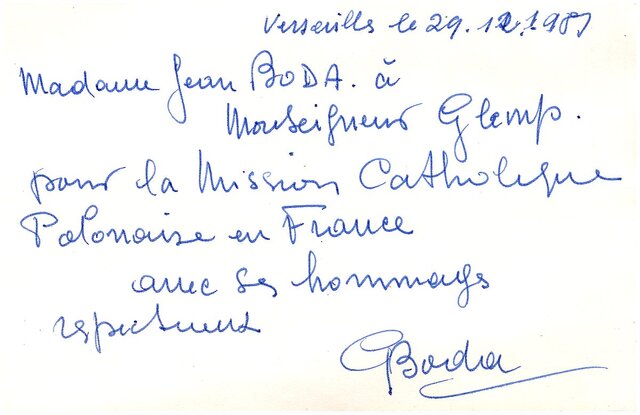 Versailles le 29.12.1981
Madame Jean BODA. à
Monseigneur Glemp.
pour la Mission Catholique
Polonaise en France
avec ses hommages
respectueux
GBoda